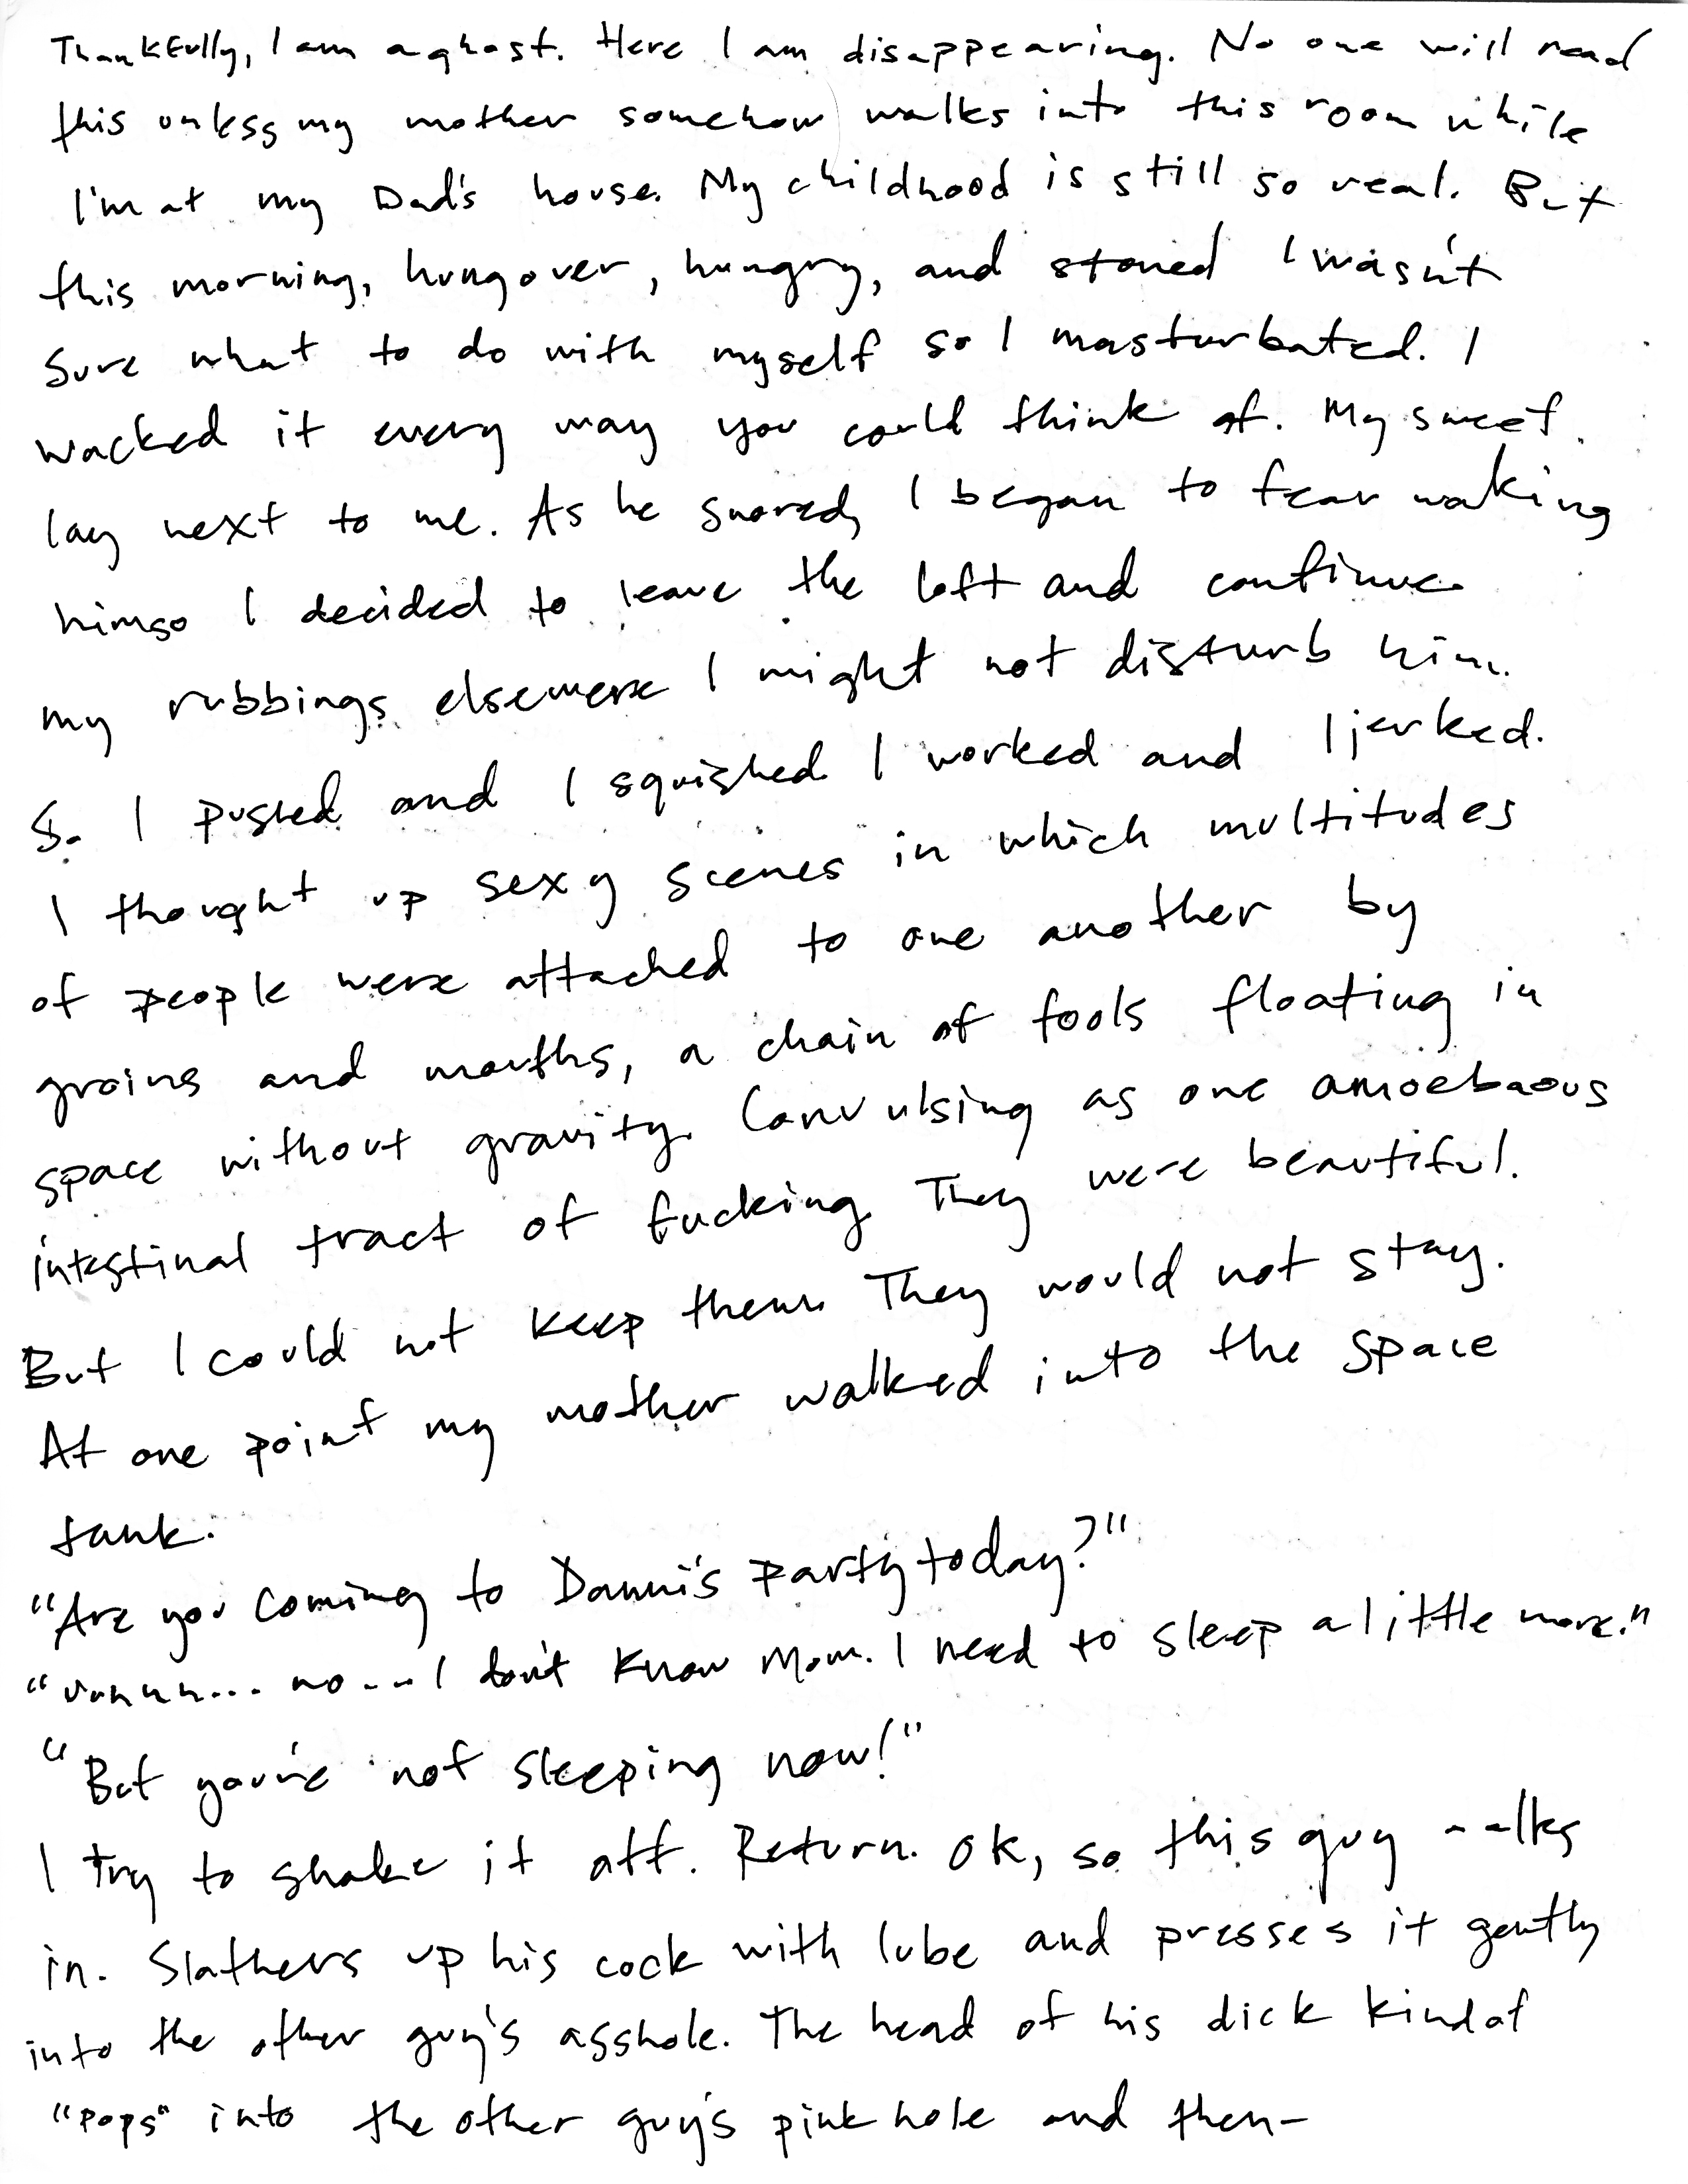 Thankfully, I am a ghost. Here I am disappearing. No one will read
this unless my mother somehow walks into this room while
I'm at my Dad's house. My childhood is still so real. But
this morning, hungover, hungry, and stoned I wasn't
sure what to do with myself so I masturbated. I
wacked it every way you could think of. My sweet
lay next to me. As he snored, I began to fear waking
him so I decided to leave the loft and continue
my rubbings elsewere I might not disturb him.
So I pushed and I squished. I worked and I jerked.
I thought up sexy scenes in which multitudes
of people were attached to one another by
groins and mouths, a chain of fools floating in
space without gravity. Convulsing as one amoebaous
intestinal tract of fucking. They were beautiful.
But I could not keep them. They would not stay.
At one point my mother walked into the space
tank.
"Are you coming to Danni's party today?"
"unnnn... no... I don't know Mom. I need to sleep a little more."
"But you're not sleeping now!"
I try to shake it off. Return. OK, so this guy walks
in. Slathers up his cock with lube and presses it gently
into the other guy's asshole. The head of his dick kindof
"pops" into the other guy's pink hole and then-